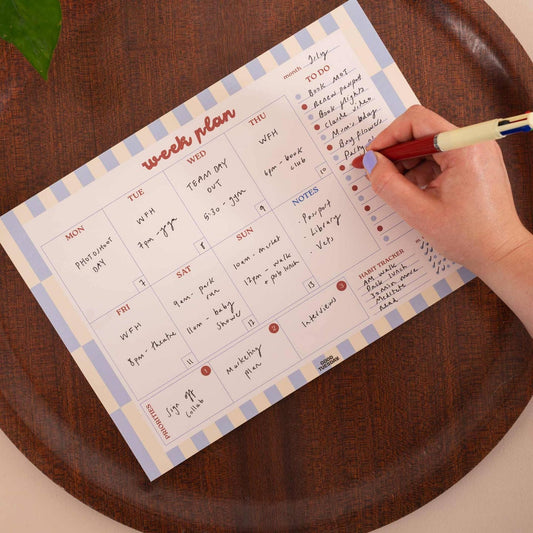 week plan
month July
MON
PHOTOSHOOT
DAY
7
TUE
WFH
7pm - yoga
8
WED
TEAM DAY
OUT
5:30 - gym
9
THU
WFH
6pm - book
club
10
FRI
WFH
8pm - theatre
11
SAT
9am - park
run
11am - baby
shower
12
SUN
10am - market
12pm - walk
+ pub lunch
13
NOTES
- Passport
- Library
- Vets
PRIORITIES
1
Sign off
collab
2
Marketing
plan
3
Interviews
TO DO
Book MOT
Renew passport
Book flights
Clashe video
Mum's bday
Buy flowers
HABIT TRACKER
AM walk
Pack lunch
Journal
Meditate
Read
GOOD
TUESDAY